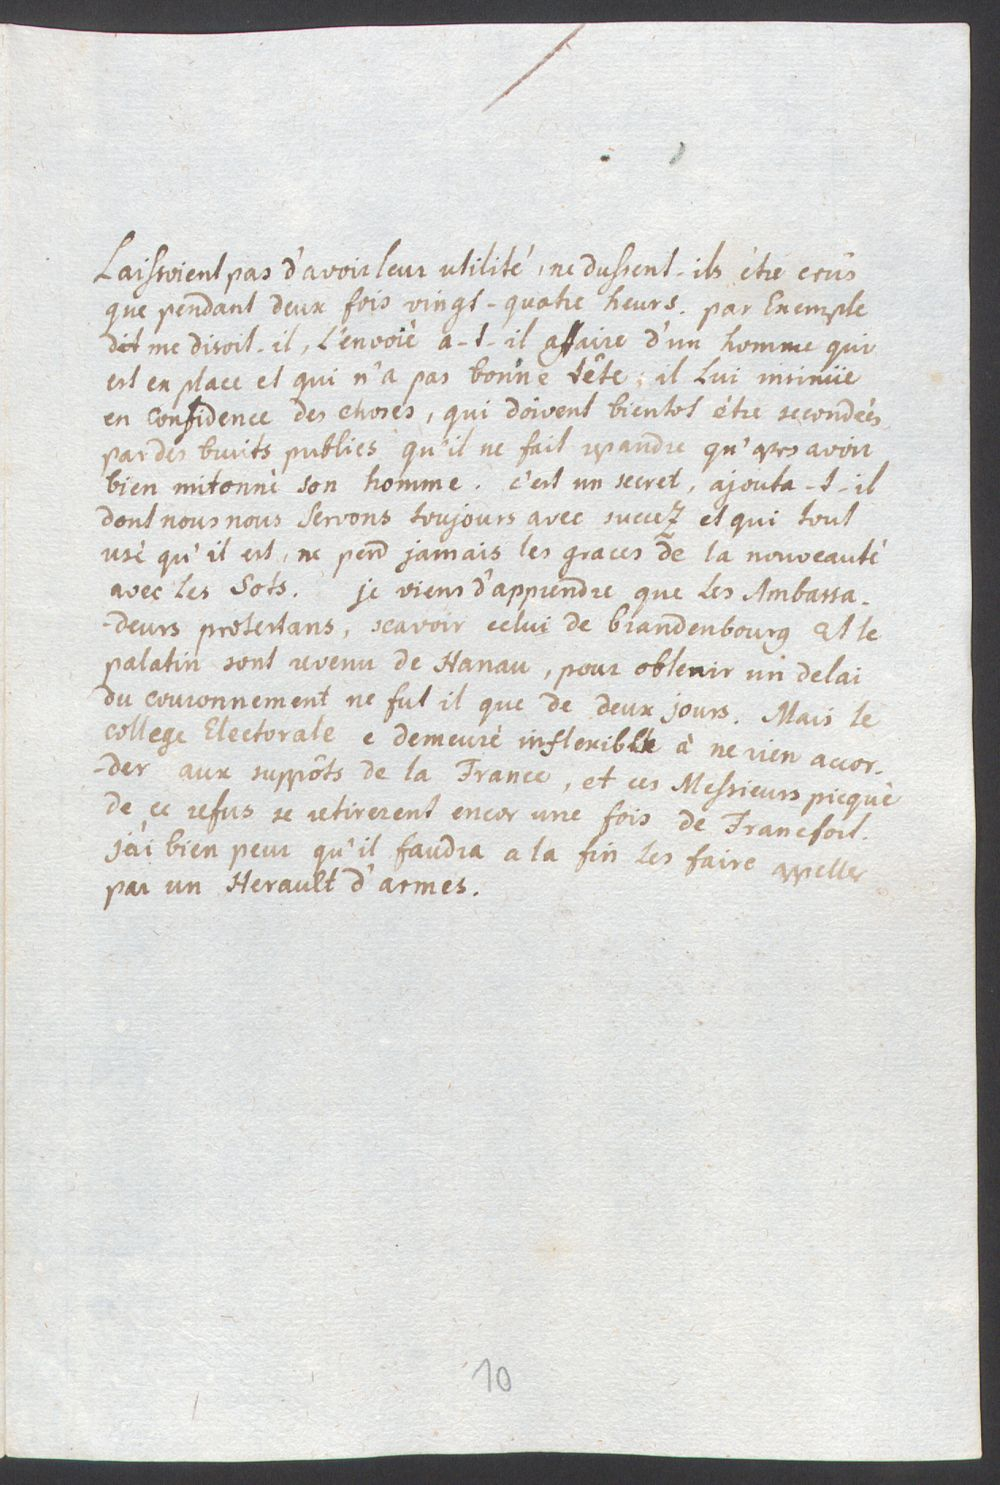 Laissoient pas d'avoir leur utilité, ne dussent-ils être crûs
que pendant deux fois vingt-quatre heurs. par Exemple
dit me disoit-il, L'envoïé a-t-il affaire d'un homme qui
est en place et qui n'a pas bonne tête; il Lui insinüe
en Confidence des choses, qui doivent bientot être secondées
par des bruits publics qu'il ne fait repandre qu'apres avoir
bien mitonné son homme. c'est un secret, ajouta-t-il
dont nous nous Servons toujours avec succez et qui tout
usé qu'il est, ne perd jamais les graces de la nouveauté
avec Les Sots. je viens d'apprendre que Les Ambassa-
-deurs protestans, scavoir celui de brandenbourg et le
palatin sont revenu de Hanau, pour obtenir un delai
du couronnement ne fut il que de deux jours. Mais le
college Electorale e demeuré inflexible à ne rien accor-
-der aux suppôts de la France, et ces Messieurs picqué
de ce refus se retirerent encor une fois de Francfort.
j'ai bien peur qu'il faudra a la fin Les faire appeller
par un Herault d'armes.
10